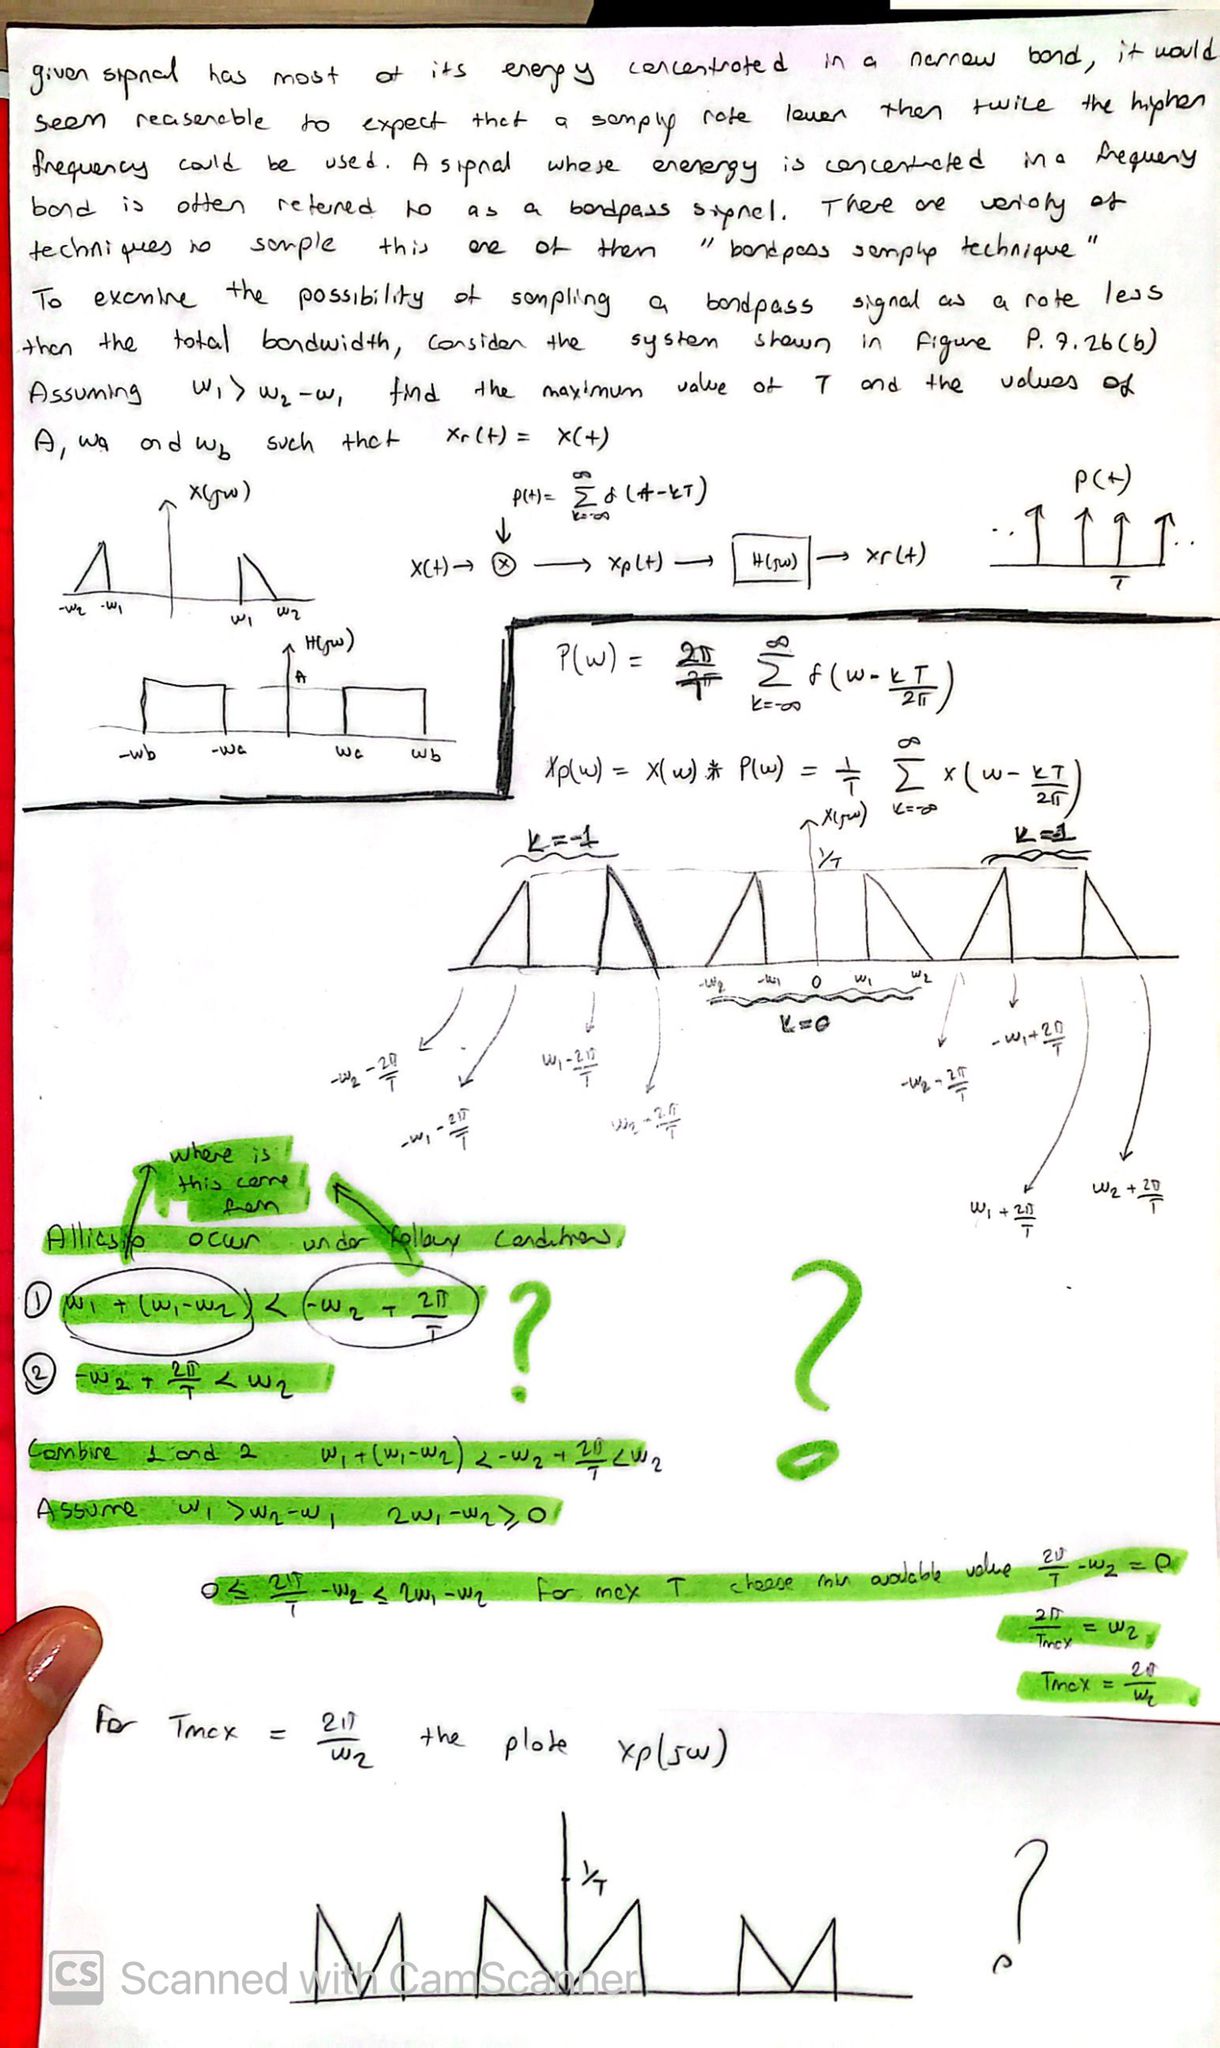 given signal has most of its energy concentrated in a narrow band, it would
seem reasenable to expect that a samplıg rate lower then twice the higher
frequency could be used. A signal whose enenergy is concentrated in a frequeny
band is often refered to as a bandpass signal. There are varioty of
techniques to sample this one of them "bandpass samplıg technique"
To examine the possibility of sampling a bandpass signal as a rate less
than the total bandwidth, consider the system shown in Figure P. 7.26(b)
Assuming w₁ > w₂-w₁ find the maximum value of T and the values of
A, wa and wb such that xr(t) = x(t)
X(jw)
-w₂ -w₁ w₁ w₂
p(t)= Σ δ(t-kT)
k=-∞ ∞
x(t) → ⊗ → xp(t) → H(jw) → xr(t)
P(t)
T
H(jw)
A
-wb -wa wa wb
P(w) = 2π/T Σ δ(w - kT/2π)
k=-∞ ∞
Xp(w) = X(w) * P(w) = 1/T Σ x(w - kT/2π)
k=-∞ ∞
k=-1 X(jw) 1/T k=1
-w₂ -w₁ 0 w₁ w₂
k=0
-w₂ - 2π/T
-w₁ - 2π/T
w₁ - 2π/T
w₂ - 2π/T
-w₂ + 2π/T
-w₁ + 2π/T
w₁ + 2π/T
w₂ + 2π/T
where is
this came
from
occur under follow conditions,
① w₁ + (w₁-w₂) < -w₂ + 2π/T ?
② -w₂ + 2π/T < w₂
?
Combine 1 and 2 w₁ + (w₁-w₂) < -w₂ + 2π/T < w₂
Assume w₁ > w₂-w₁ 2w₁-w₂ ≥ 0
0 ≤ 2π/T - w₂ ≤ 2w₁-w₂ For max T choose min available value 2π/T - w₂ = 0
2π/Tmax = w₂
Tmax = 2π/w₂
For Tmax = 2π/w₂ the plote xp(jw)
1/T
?
CS Scanned with CamScanner